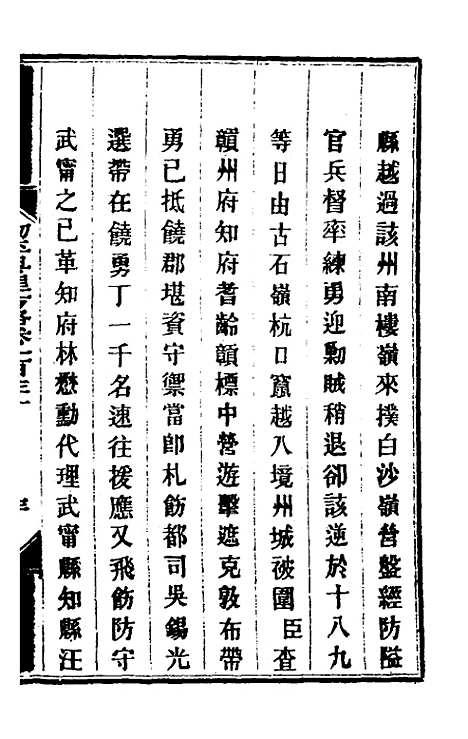 縣越過該州南樓嶺來撲白沙嶺營盤經防隘
官兵督率練勇迎勦賊稍退卻該逆於十八九
等日由古石嶺杭口竄越入境州城被圍臣查
贛州府知府耆齡贛標中營遊擊遮克敦布帶
勇已抵饒郡堪資守禦當卽札飭都司吳錫光
選帶在饒勇丁一千名速往援應又飛飭防守
武甯之已革知府林懋勳代理武甯縣知縣汪